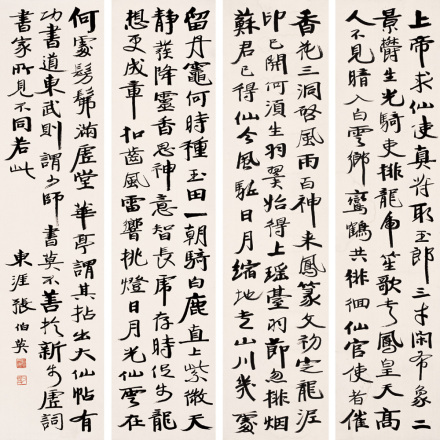 上帝求仙使真符取玉郎三才閑布象二
景鬱生光騎吏排龍虎笙歌走鳳皇天高
人不見暗入白雲鄉鸞鶴共徘徊仙官使者催
香花三洞啓風雨百神來鳳篆文初定龍泥
印已開何須生羽翼始得上瑤臺羽節忽排烟
蘇君已得仙令風駈日月縮地走山川幾處
留丹竈何時種玉田一朝騎白鹿直上紫微天
靜發降靈香思神意智長虎存時促步龍在
想更成章扣齒風雷響挑燈日月光仙雲在
何處髣髴滿虛堂華亭謂其拈出大仙帖有
功書道東武則謂少師書莫不善於新步虛詞
書家所見不同若此
東涯張伯英